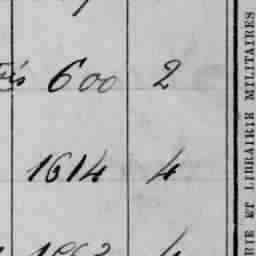 600 2
1614 4
RIE ET LIBRAIRIE MILITAIRES